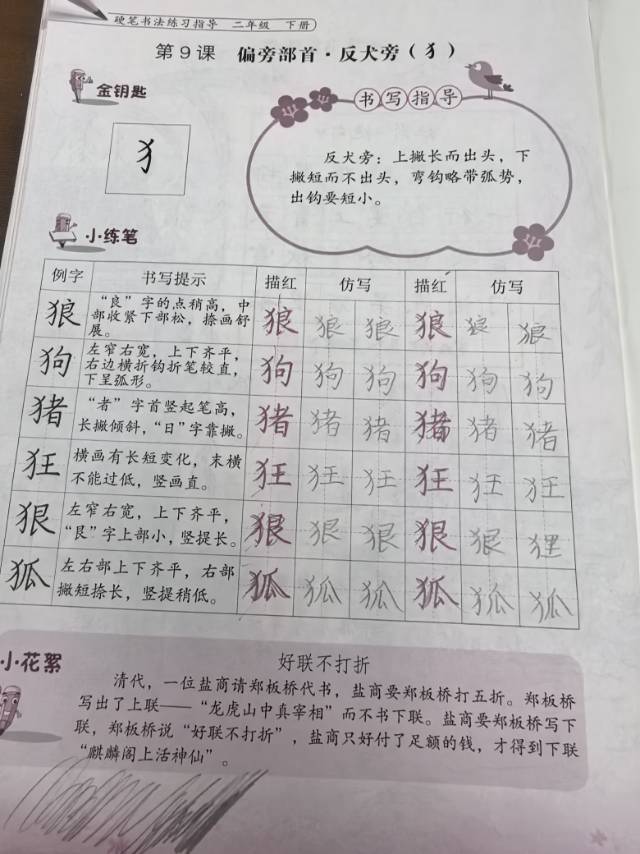 硬笔书法练习指导 二年级 下册
第9课 偏旁部首·反犬旁（犭）
金钥匙
书写指导
犭
反犬旁：上撇长而出头，下
撇短而不出头，弯钩略带弧势，
出钩要短小。
小练笔
例字 书写提示 描红 仿写 描红 仿写
狼 “良”字的点稍高，中
部收紧下部松，捺画舒
展。 狼 狼 狼 狼 狼 狼
狗 左窄右宽，上下齐平，
右边横折钩折笔较直，
下呈弧形。 狗 狗 狗 狗 狗 狗
猪 “者”字首竖起笔高，
长撇倾斜，“日”字靠撇。 猪 猪 猪 猪 猪 猪
狂 横画有长短变化，末横
不能过低，竖画直。 狂 狂 狂 狂 狂 狂
狠 左窄右宽，上下齐平，
“艮”字上部小，竖提长。 狠 狠 狠 狠 狠
狐 左右部上下齐平，右部
撇短捺长，竖提稍低。 狐 狐 狐 狐 狐 狐
小花絮
好联不打折
清代，一位盐商请郑板桥代书，盐商要郑板桥打五折。郑板桥
写出了上联——“龙虎山中真宰相”而不书下联。盐商要郑板桥写下
联，郑板桥说“好联不打折”，盐商只好付了足额的钱，才得到下联
“麒麟阁上活神仙”。